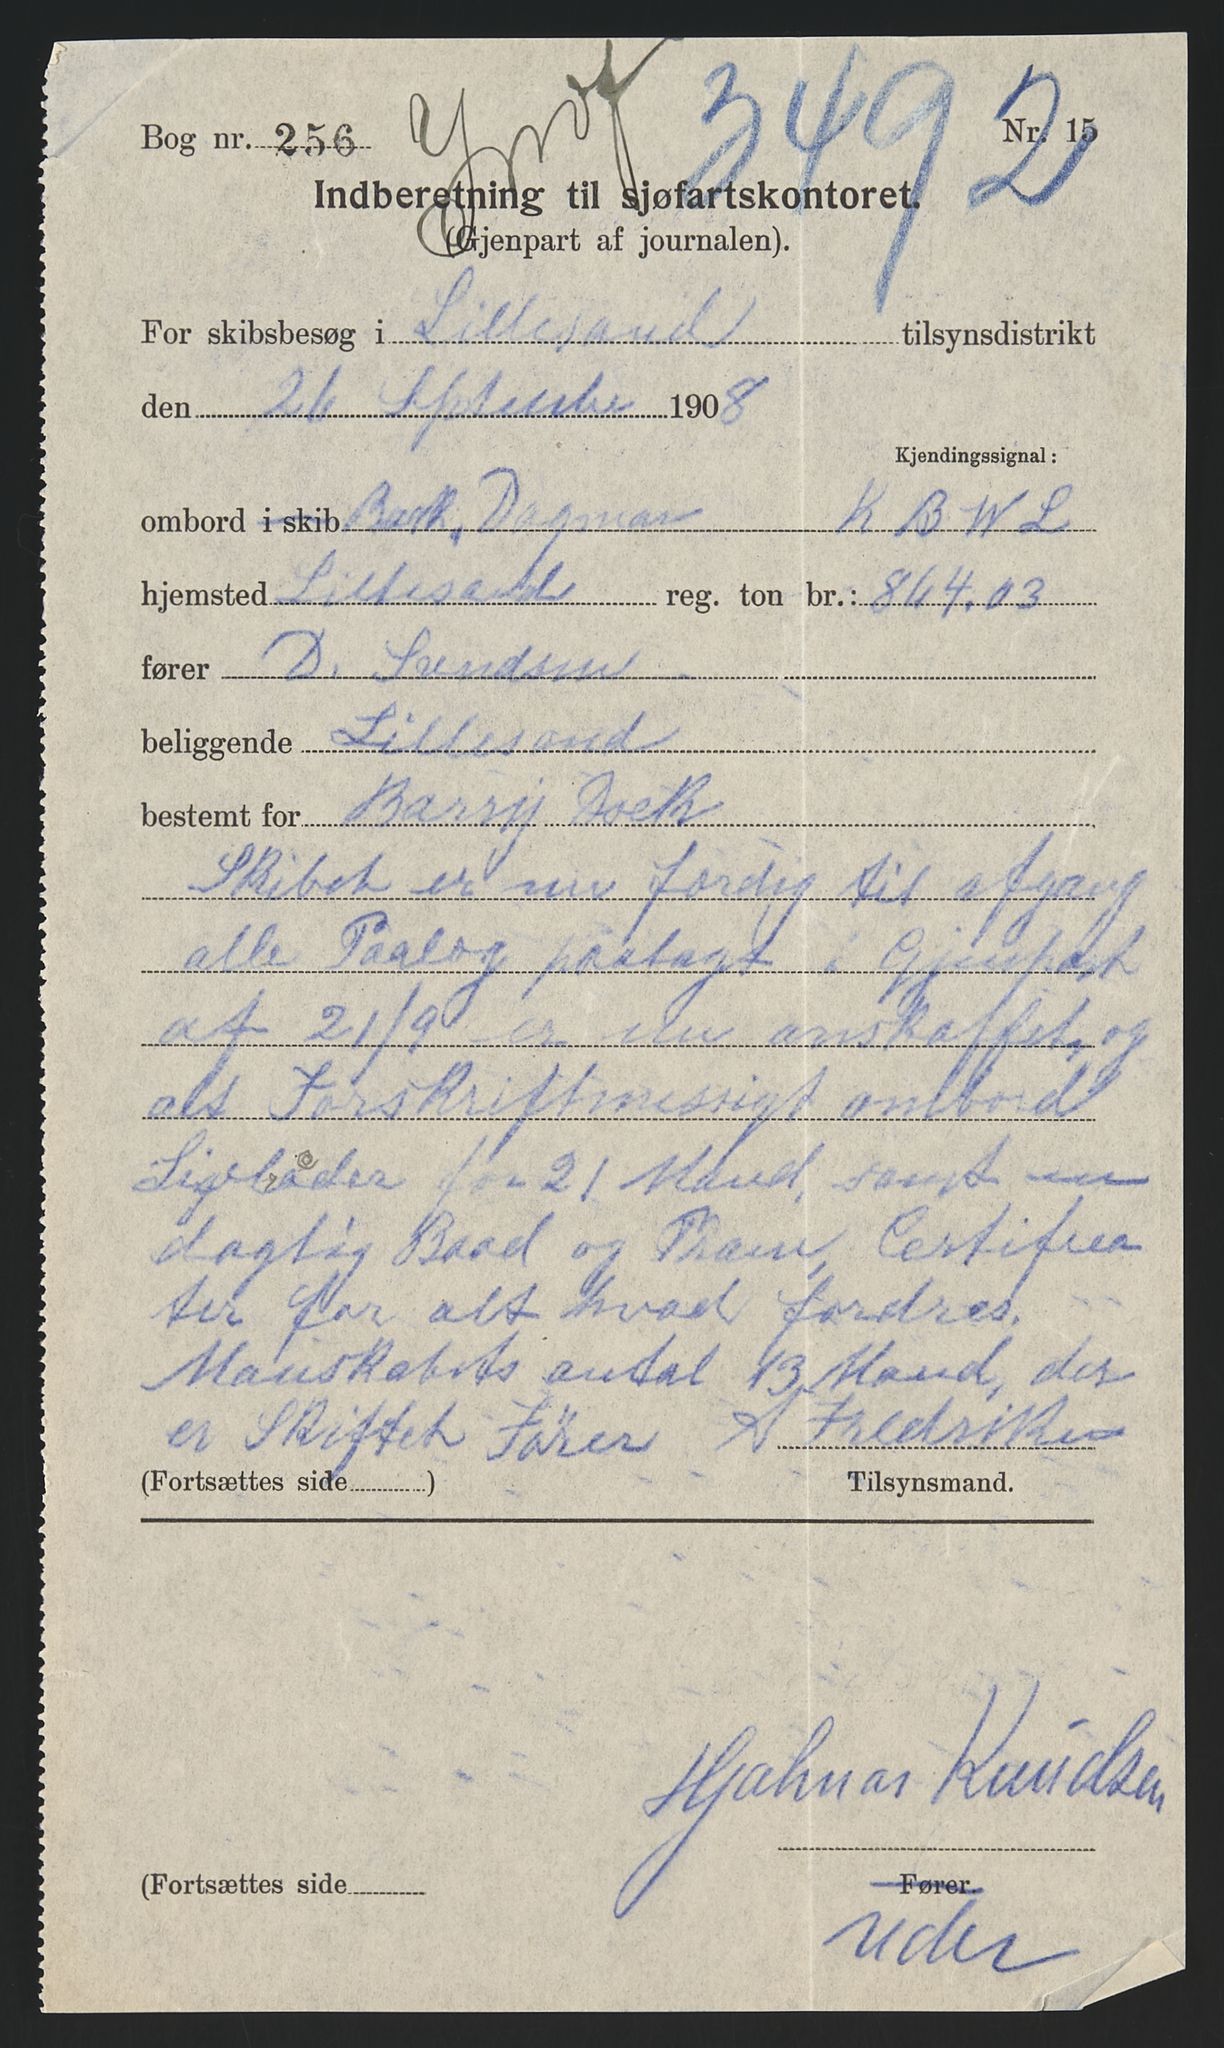 3492
Bog nr. 256 Nr. 15
Indberetning til sjøfartskontoret.
(Gjenpart af journalen).
For skibsbesøg i Lillesand tilsynsdistrikt
den 26 September 1908
Kjendingssignal:
ombord i skib Bark, Dagmar K B W L
hjemsted Lillesand reg. ton br.: 864.03
fører D. Svendsen
beliggende Lillesand
bestemt for Barry Dock
Skibet er nu færdig til afgang
alle Paalæg paalagt i Gjenpart
af 21/9 er nu anskaffet, og
alt Forskriftmessigt ombord
Livbåder for 21 Mand, samt en
daglig Baad og Pram, Certifica
ter for alt hvad fordres.
Manskabets antal 13 Mand, der
er Skiftet Förer Fredriksen
(Fortsættes side ) Tilsynsmand.
Hjalmar Knudsen
(Fortsættes side Fører.
reder